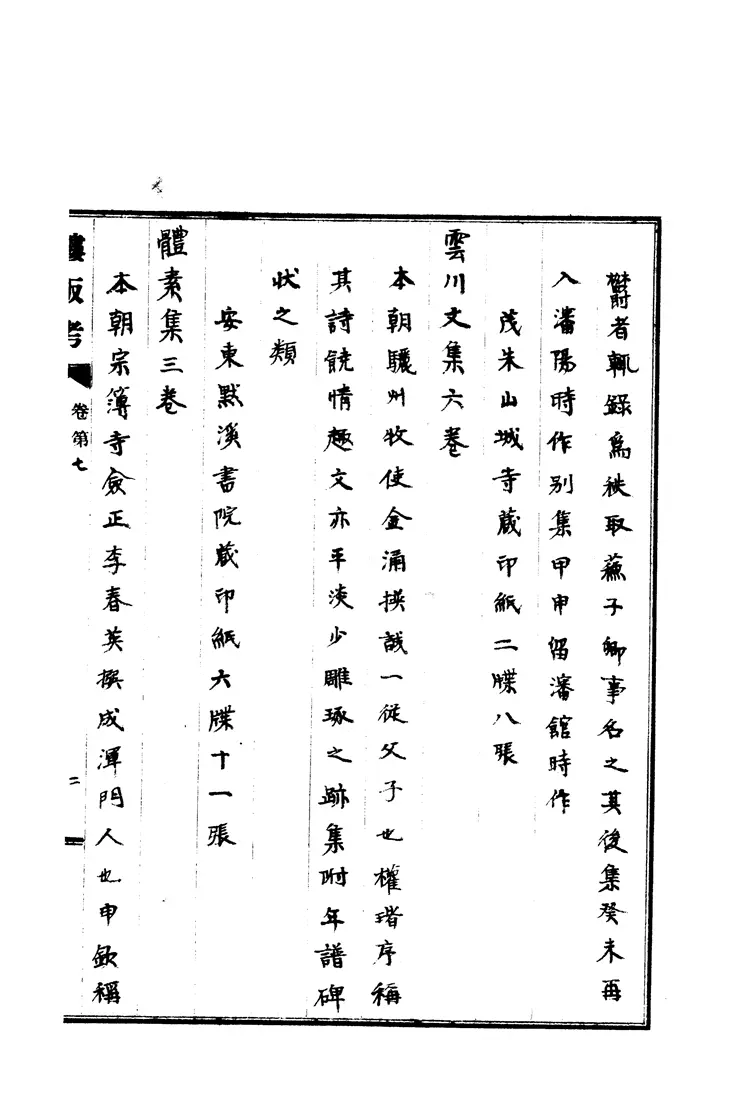 欝者輒錄爲袟取蘇子卿事名之其後集癸未再
入瀋陽時作别集甲申留瀋館時作
茂朱山城寺蔵印紙二牒八張
雲川文集六巻
本朝驪州牧使金涌撰誠一從父子也權瑎序稱
其詩饒情趣文亦平淡少雕琢之跡集附年譜碑
狀之類
安東默溪書院蔵印紙六牒十一張
體素集三巻
本朝宗簿寺僉正李春英撰成渾門人也申欽稱
鏤板考
卷第七
二